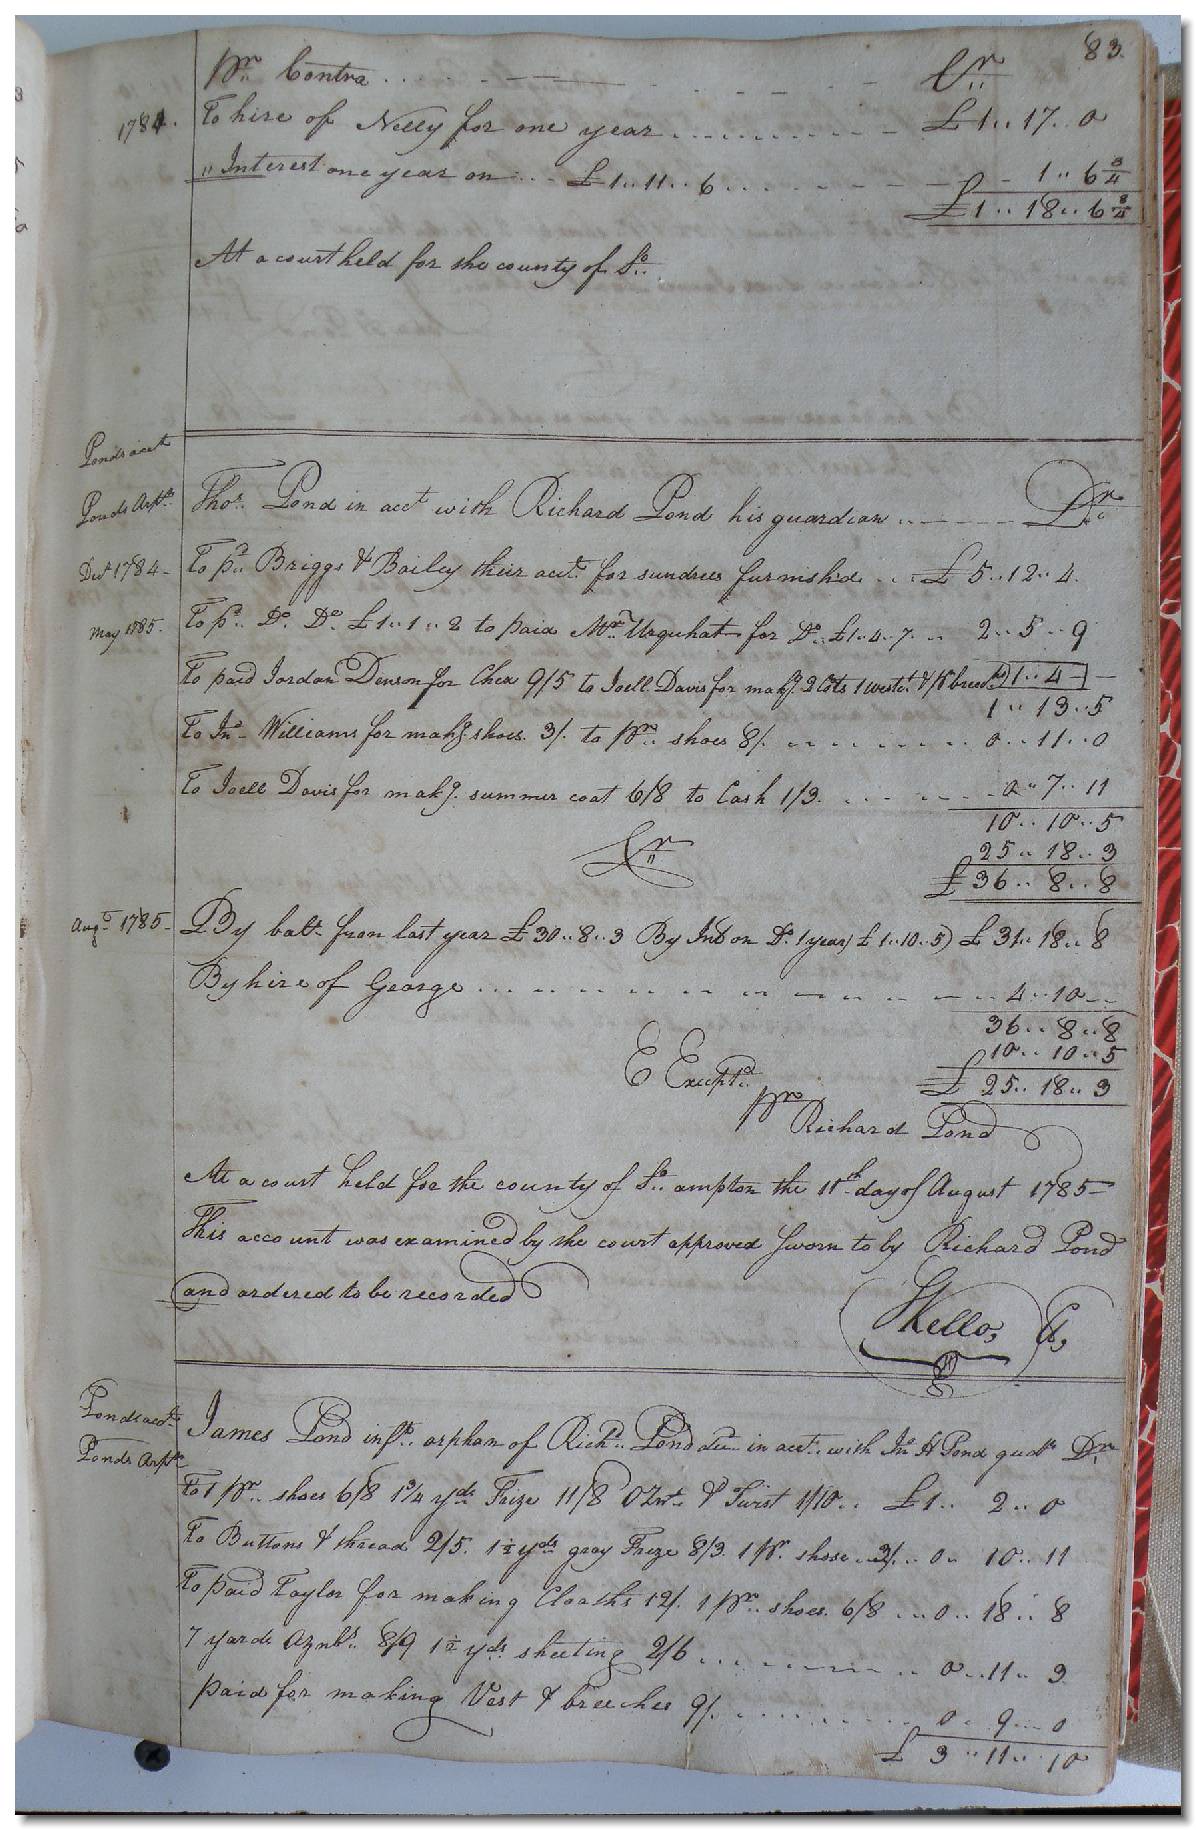 83.
Pr. Contra Cr.
1784. To hire of Nelly for one year £1..17..0
" Interest one year on £1..11..6 1..6 3/4
£1..18..6 3/4
At a court held for the county of So.
Ponds acct
Ponds Orpts. Thos. Pond in acct with Richard Pond his guardian Dr
Dect 1784 To pd. Briggs & Bailey their acct. for sundrees furnished £5..12..4
May 1785. To pd. Do. Do. £1..1..2 to paid Mr. Urquhat for Do. £1..4..7. 2..5..9
To paid Jordan Denson for Chex 9/5 to Joell Davis for makg. 2 Cots 1 westct. & 1 pr breechs 1..4
1..13..5
To Jn. Williams for makg shoes. 3/. to pr. shoes 8/. 0..11..0
To Joell Davis for makg. summer coat 6/8 to Cash 1/3. 0..7..11
10..10..5
Cr 25..18..3
£36..8..8
Augt. 1785 By balt. from last year £30..8..3 By Int on Do. 1 year) £1..10..5) £31..18..8
By hire of George 4..10
36..8..8
10..10..5
E Exceptd. £25..18..3
pr Richard Pond
At a court held for the county of So.ampton the 11th day of August 1785
This account was examined by the court approved sworn to by Richard Pond
and ordered to be recorded
SKello, C,
Ponds acct
Ponds Orpts James Pond inft. orphan of Richd. Pond dec in acct. with Jn H Pond gudn Dr.
To 1 pr. shoes 6/8 1 3/4 yds Frize 11/8 Oznt. & Twist 1/10 £1..2..0
To Buttons & thread 2/5. 1 1/2 yds gray Frize 8/3. 1 pr. shose 3/. 0..10..11
To paid Taylor for making Cloaths 12/. 1 pr. shoes. 6/8 0..18..8
7 yards Oznbs. 8/9 1 1/2 yds. sheeting 2/6 0..11..3
paid for making Vest & breeches 9/. 0..9..0
£3..11..10